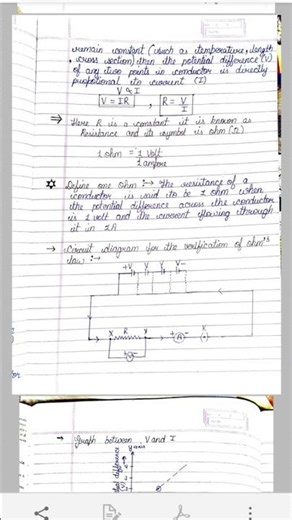 remain constant (such as temperature, length
cross section) then the potential difference (V)
of any two points in conductor is directly
propotional its current (I)
V ∝ I
V = IR , R = V/I
⇒ Here R is a constant it is known as
Resistance and its symbol is ohm (Ω)
1 ohm = 1 Volt
1 ampere
Define one ohm :→ The resistance of a
conductor is said to be 1 ohm when
the potential difference across the conductor
is 1 volt and the current flowing through
it is 1A
→ Circuit diagram for the verification of ohm's
law :→
+V V V V−
X R Y + A − K
+ V −
→ Graph between V and I
Y-axis